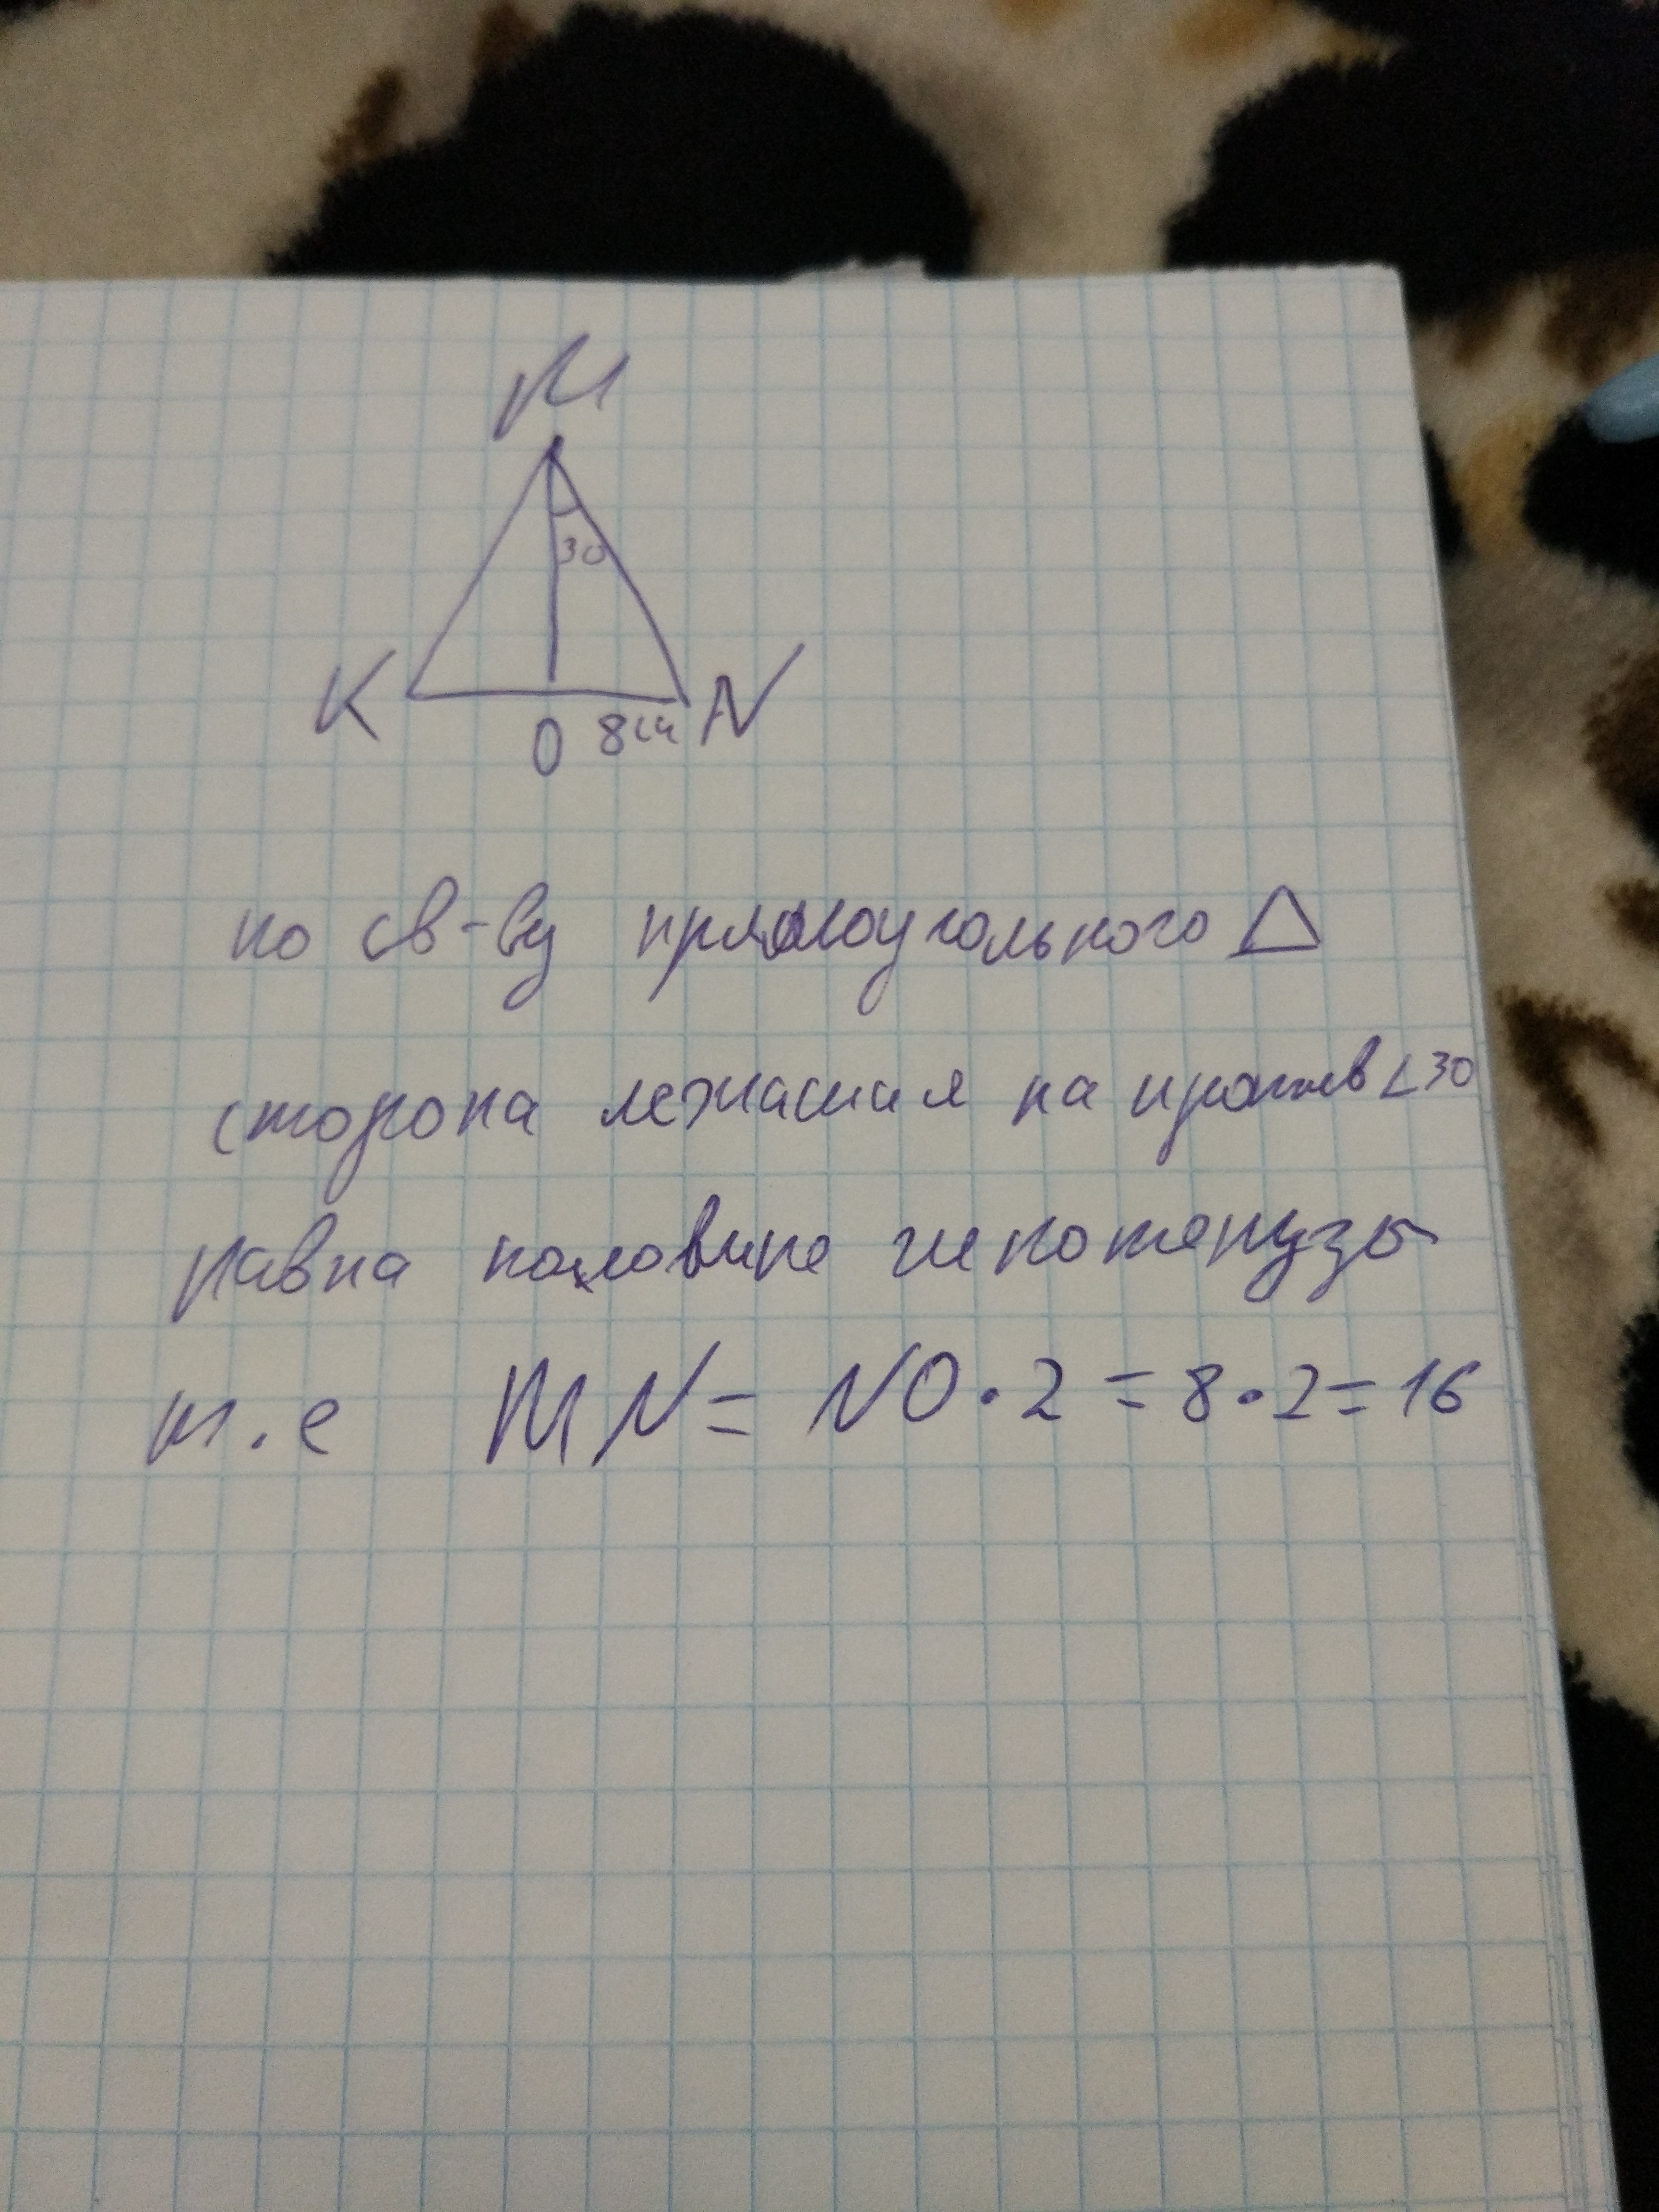 M
30
K
N
O 8см
по св-ву прямоугольного △
сторона лежащая на против ∠30
равна половине гипотенузы
т.е MN = NO · 2 = 8 · 2 = 16